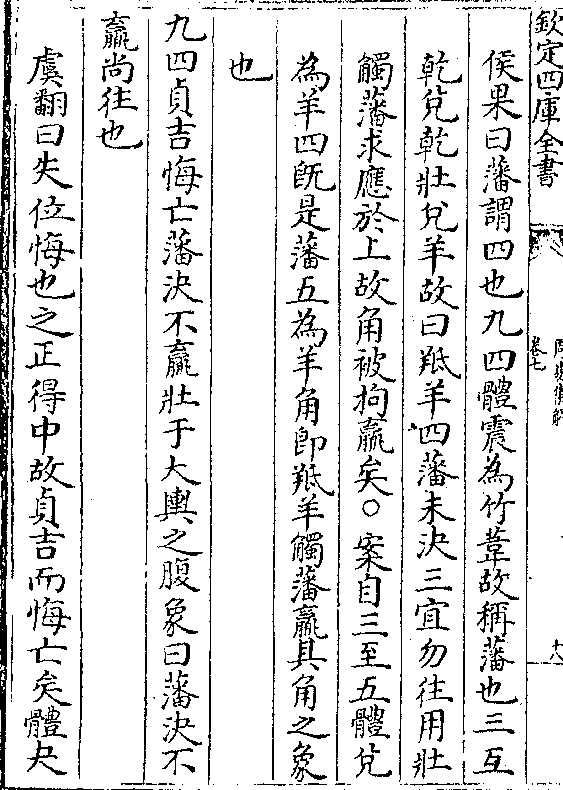 欽定四庫全書
卷七
十八
侯果曰藩謂四也九四體震為竹葦故稱藩也三互
乾兌乾壯兌羊故曰羝羊四藩未決三宜勿往用壯
觸藩求應於上故角被拘羸矣○案自三至五體兌
為羊四既是藩五為羊角即羝羊觸藩羸其角之象
也
九四貞吉悔亡藩決不羸壯于大輿之腹象曰藩決不
羸尚往也
虞翻曰失位悔也之正得中故貞吉而悔亡矣體夬